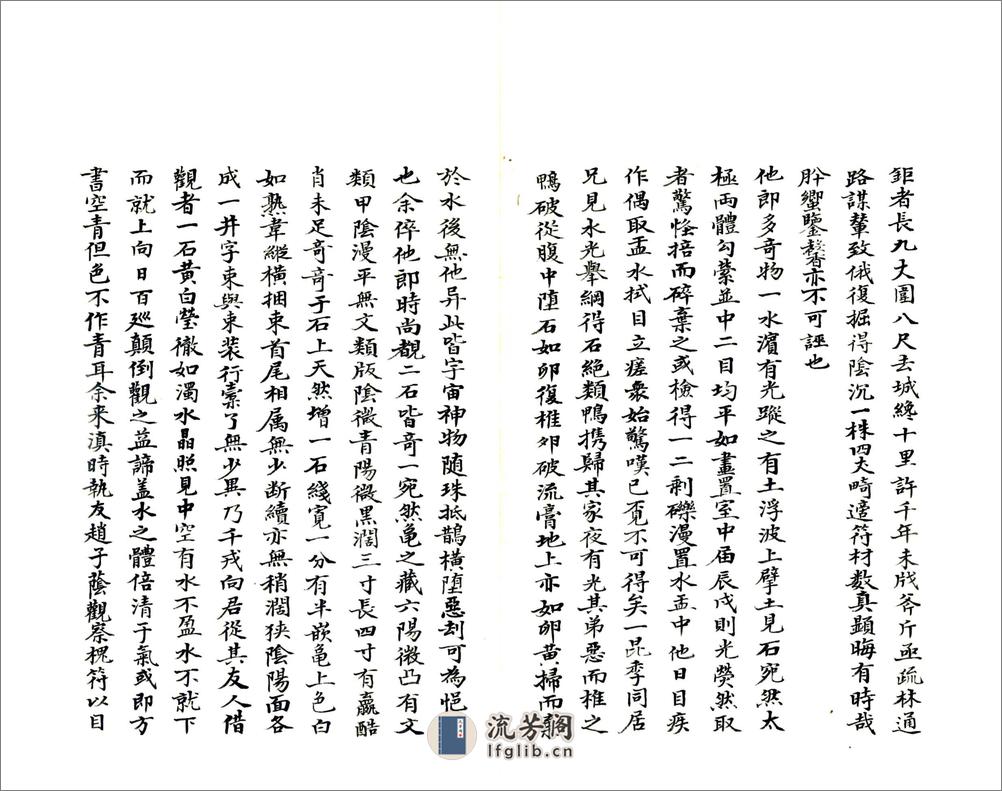 鉅者長九丈圍八尺去城纔十里許千年未戕斧斤亟疏林通
路謀輦致俄復掘得陰沉一株四丈畸遣符材数真顕晦有時哉
肸蠁鑒馨亦不可誣也
他郎多竒物一水濱有光蹤之有土浮波上擘土見石宛然太
極両體勾縈並中二目均平如畫置室中届辰戌則光熒然取
者驚恠掊而碎棄之或檢得一二剩礫漫置水盂中他日目疾
作偶取盂水拭目立瘥衆始驚嘆已覔不可得矣一昆季同居
兄見水光擧網得石絶類鴨携歸其家夜有光其弟惡而椎之
鴨破従腹中堕石如卵復椎卵破流膏地上亦如卵黄掃而棄
於水後無他异此皆宇宙神物随珠抵鵲横堕惡刦可為悒
也余倅他郎時尚覩二石皆竒一宛然亀之藏六陽微凸有文
類甲陰漫平無文類版陰微青陽微黒濶三寸長四寸有贏酷
肖未足竒竒于石上天然增一石綫寛一分有半嵌亀上色白
如熟韋縱横捆束首尾相属無少断續亦無稍濶狭陰陽面各
成一井字束與束装行橐了無少異乃千戎向君従其友人借
觀者一石黄白瑩徹如濁水晶照見中空有水不盈水不就下
而就上向日百廵顛倒觀之益諦盖水之體倍清于氣或即方
書空青但色不作青耳余来滇時執友趙子蔭觀察槐符以目
流芳閣
lfglib.cn